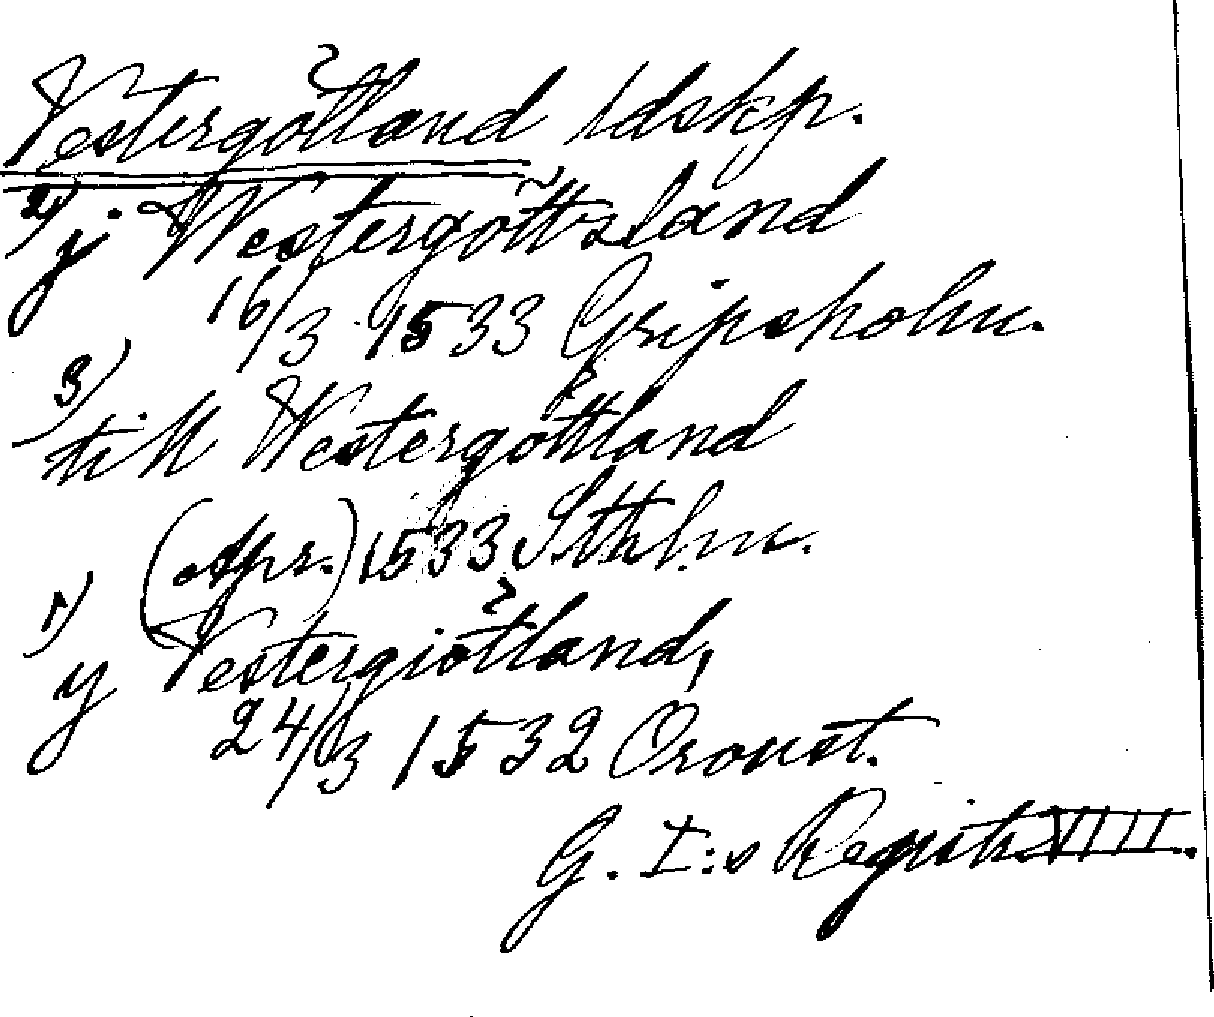 Vestergötland ldskp.
2) j. Westergöttzland
16/3 1533 Gripsholm.
3) till Westergöttland
(Apr.) 1533 Sthlm.
1) y Vestergiötland,
24/3 1532 Oronst.
G. I:s Registr. VIIII.